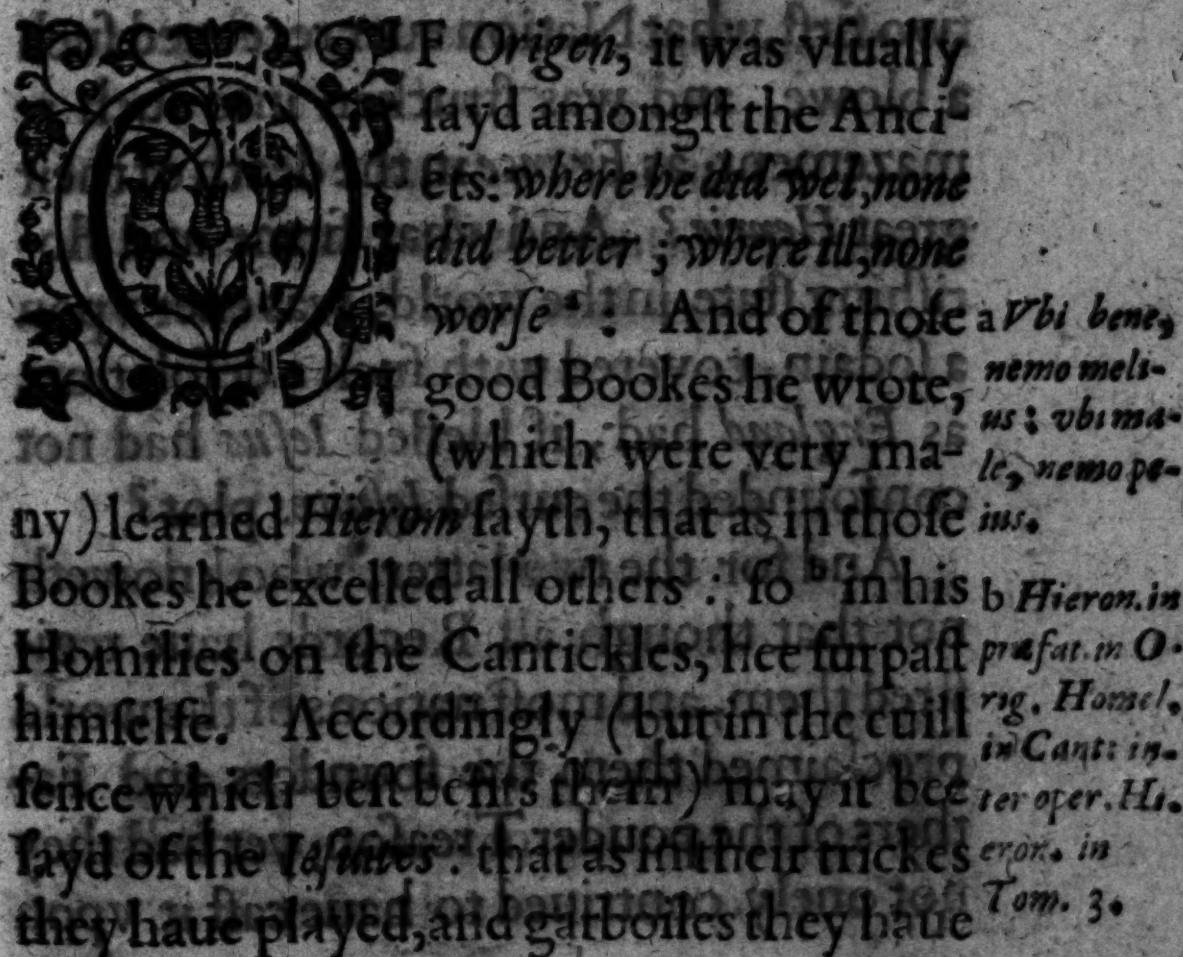 OF Origen, it was vſually
ſayd amongſt the Anci-
ẽts: where he did wel, none
did better ; where ill, none
worſe ᵃ : And of thoſe
good Bookes he wrote,
(which were very ma-
ny) learned Hierom ſayth, that as in thoſe
Bookes he excelled all others : ſo ᵇ in his
Homilies on the Cantickles, hee ſurpaſt
himſelfe. Accordingly (but in the euill
ſence which beſt befits them) may it bee
ſayd of the Ieſuites : that as in their trickes
they haue played, and garboiles they haue
a Vbi bene,
nemo meli-
us : vbi ma-
le, nemo pe-
ius.
b Hieron. in
præfat. in O-
rig. Homel.
in Cant: in-
ter oper. Hi-
eron. in
Tom. 3.